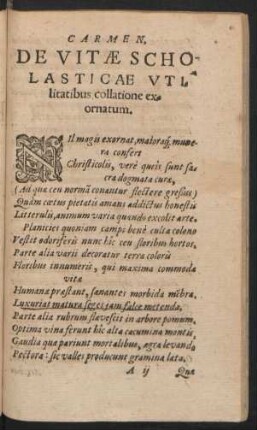 CARMEN.
DE VITÆ SCHO-
LASTICAE VTI-
litatibus collatione ex-
ornatum.
NIl magis exornat, maioraq́; mune-
ra confert
Christicolis, verè queis sunt sa-
cra dogmata curæ,
(Ad quæ ceu normã conantur flectere gressus)
Quàm cœtus pietatis amans addictus honestis
Litterulis, animum varia quando excolit arte.
Planicies quoniam campi benè culta colono
Vestit odorferis nunc hic ceu floribus hortos,
Parte alia varijs decoratur terra coloris
Floribus innumeris, qui maxima commoda
vitæ
Humanæ præstant, sanantes morbida mẽbra.
Luxuriat matura seges iam falce metenda,
Parte alia rubrum flavescit in arbore pomum,
Optima vina ferunt hîc alta cacumina montis,
Gaudia quæ pariunt mortalibus, ægra levando
Pectora: sic valles producunt gramina læta.
A ij
Quæ